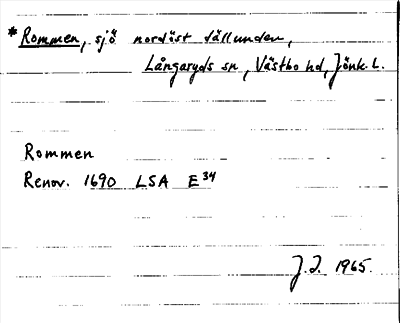 *Rommen, sjö nordöst Tällunden,
Långaryds sn, Västbo hd, Jönk. L.
Rommen
Renov. 1690 LSA E34
J.I. 1965.